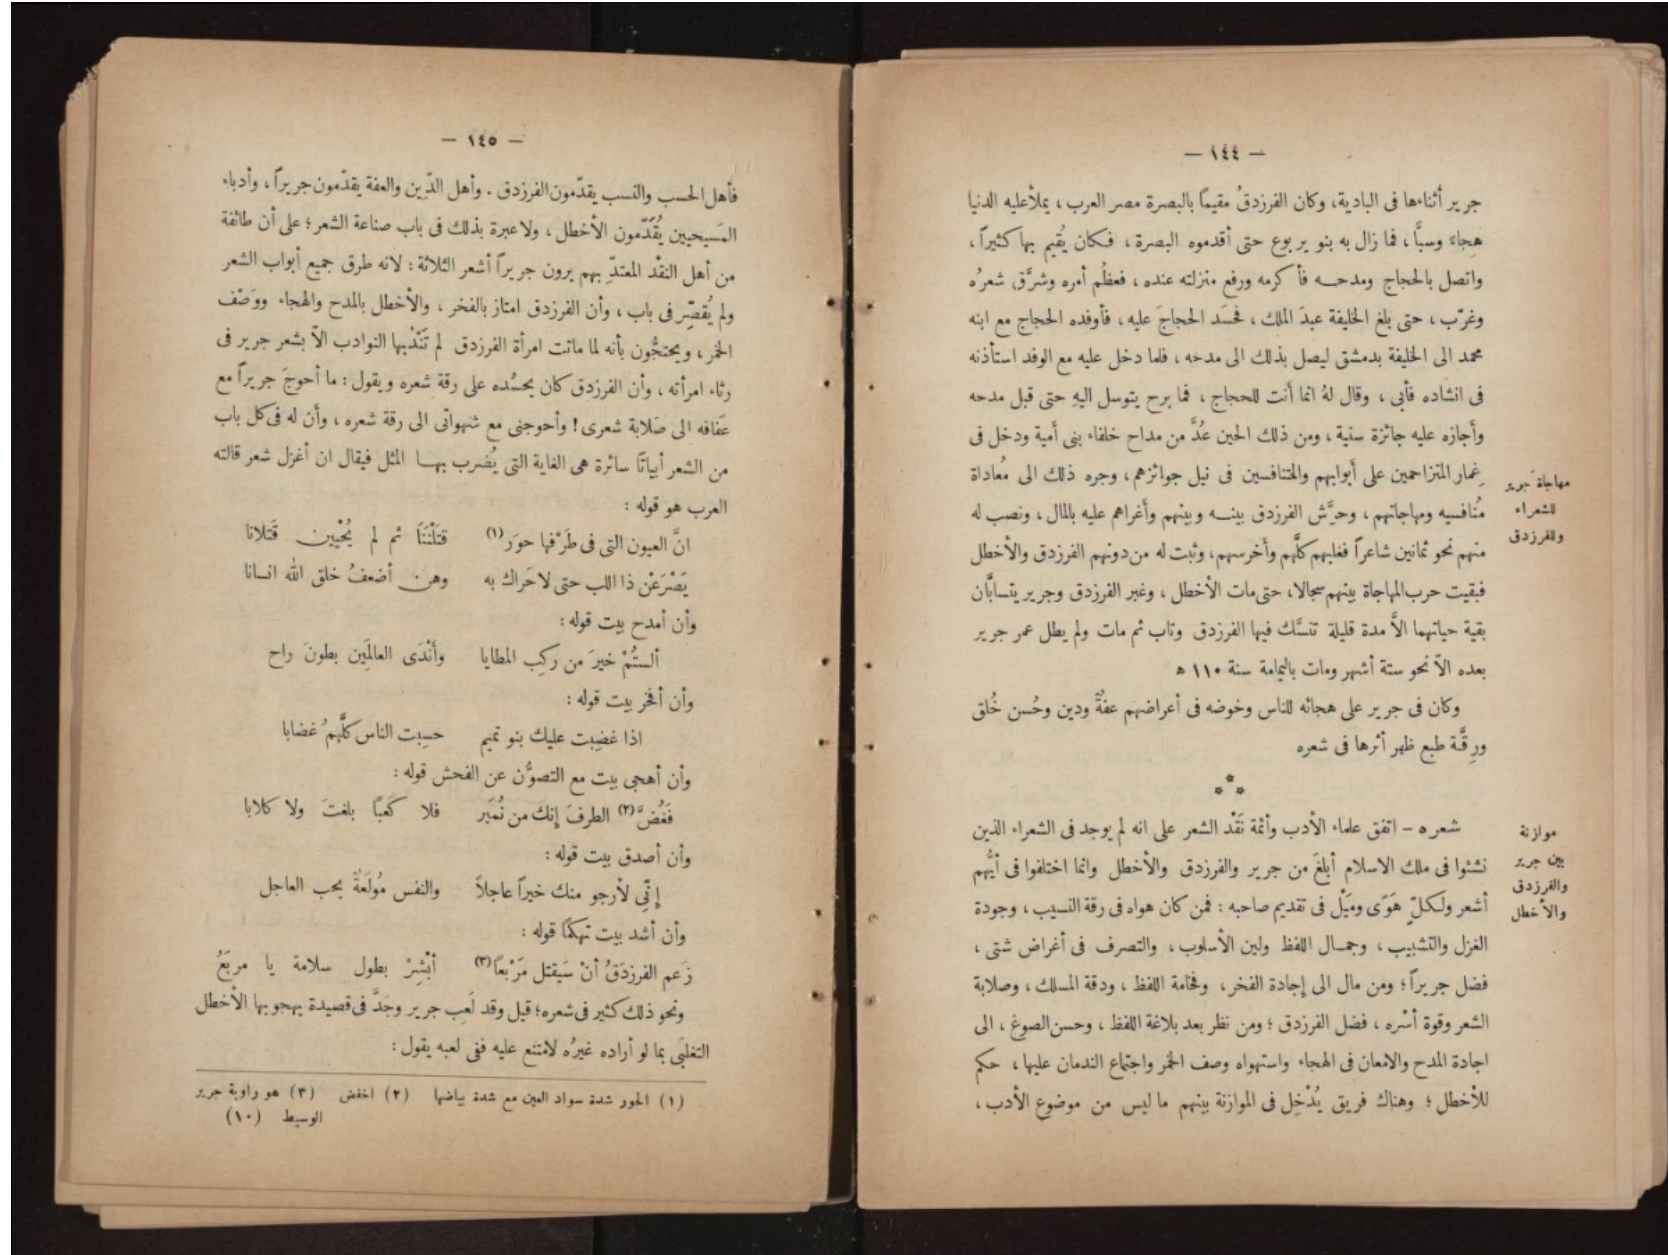 — ١٤٤ —
جرير أثناءها فى البادية، وكان الفرزدقُ مقيمًا بالبصرة مصر العرب، يملأ عليه الدنيا
هِجاءَ وسبًّا، فما زال به بنو يربوع حتى أقدموه البصرة، فكان يُقيم بها كثيراً،
واتصل بالحجاج ومدحه فأكرمه ورفع منزلته عنده، فعظُم أمره وشرَّق شعرُه
وغرّب، حتى بلغ الخليفة عبدَ الملك، فحسَد الحجاجَ عليه، فأوفده الحجاج مع ابنه
محمد الى الخليفة بدمشق ليصل بذلك الى مدحه، فلما دخل عليه مع الوفد استأذنه
فى انشاده فأبى، وقال لهُ انما أنت للحجاج، فما برح يتوسل اليهِ حتى قبل مدحه
وأجازه عليه جائزة سنية، ومن ذلك الحين عُدَّ من مداح خلفاء بنى أمية ودخل فى
غِمار المتزاحمين على أبوابهم والمتنافسين فى نيل جوائزهم، وجره ذلك الى مُعاداة
مُنافسيه ومهاجاتهم، وحرَّش الفرزدق بينه وبينهم وأغراهم عليه بالمال، ونصب له
منهم نحو ثمانين شاعراً فغلبهم كلَّهم وأخرسهم، وثبت له من دونهم الفرزدق والأخطل
فبقيت حرب المهاجاة بينهم سجالا، حتى مات الأخطل، وغبر الفرزدق وجرير يتسابَّان
بقية حياتهما الاَّ مدة قليلة تنسَّك فيها الفرزدق وتاب ثم مات ولم يطل عمر جرير
بعده الاّ نحو ستة أشهر ومات باليمامة سنة ١١٠ ه
وكان فى جرير على هجائه للناس وخوضه فى أعراضهم عفةٌ ودين وحُسن خُلق
ورِقَّة طبع ظهر أثرها فى شعره
مهاجاة جرير
للشعراء
وللفرزدق
* * *
شعره – اتفق علماء الأدب وأئمة نَقْد الشعر على انه لم يوجد فى الشعراء الذين
نشئوا فى ملك الاسلام أبلغَ من جرير والفرزدق والأخطل وانما اختلفوا فى أيُّهم
أشعر ولكلّ هَوًى ومَيْل فى تقديم صاحبه: فمن كان هواه فى رقة النسيب، وجودة
الغزل والتشبيب، وجمال اللفظ ولين الأسلوب، والتصرف فى أغراض شتى،
فضل جريراً؛ ومن مال الى إجادة الفخر، وفخامة اللفظ، ودقة المسلك، وصلابة
الشعر وقوة أسْره، فضل الفرزدق؛ ومن نظر بعد بلاغة اللفظ، وحسن الصوغ، الى
اجادة المدح والامعان فى الهجاء واستهواه وصف الخمر واجتماع الندمان عليها، حكم
للأخطل؛ وهناك فريق يُدْخِل فى الموازنة بينهم ما ليس من موضوع الأدب،
موازنة
بين جرير
والفرزدق
والأخطل
— ١٤٥ —
فأهل الحسب والنسب يقدّمون الفرزدق. وأهل الدّين والعفة يقدّمون جريراً، وأدباء
المَسيحيين يُقَدّمون الأخطل، ولا عبرة بذلك فى باب صناعة الشعر؛ على أن طائفة
من أهل النقْد المعتدّ بهم يرون جريراً أشعر الثلاثة: لانه طرق جميع أبواب الشعر
ولم يُقصِّر فى باب، وأن الفرزدق امتاز بالفخر، والأخطل بالمدح والهجاء ووَصْف
الخمر، ويحتجُّون بأنه لما ماتت امرأة الفرزدق لم تَنْدُبها النوادب الاّ بشعر جرير فى
رثاء امرأته، وأن الفرزدق كان يحسُده على رقة شعره ويقول: ما أحوجَ جريراً مع
عَفافه الى صَلابة شعرى! وأحوجنى مع شهواتى الى رقة شعره، وأن له فى كل باب
من الشعر أبياتًا سائرة هى الغاية التى يُضرب بها المثل فيقال ان أغزل شعر قالته
العرب هو قوله:
انَّ العيون التى فى طَرْفها حوَر (١) قتَلْنَنَا ثم لم يُحْيِين قَتلانا
يَصْرَعْن ذا اللب حتى لا حَراك به وهن أضعفُ خلق الله انسانا
وأن أمدح بيت قوله:
ألستُمْ خيرَ من ركِب المطايا وأَنْدَى العالَمِين بطونَ راح
وأن أفخر بيت قوله:
اذا غضِبت عليك بنو تميم حسِبت الناس كلَّهمُ غضابا
وأن أهجى بيت مع التصوُّن عن الفحش قوله:
فَغُضَّ (٢) الطرفَ إنك من نُمَير فلا كَعبًا بلغتَ ولا كلابا
وأن أصدق بيت قوله:
إنّى لأرجو منك خيراً عاجلاً والنفس مُولَعةٌ بحب العاجل
وأن أشد بيت تهكمًا قوله:
زَعم الفرزدَقُ أنْ سَيقتل مَرْبعًا (٣) أبْشِرْ بطول سلامة يا مربَعُ
ونحو ذلك كثير فى شعره؛ قيل وقد لَعِب جرير وجَدَّ فى قصيدة يهجو بها الأخطل
التغلبَى بما لو أراده غيرُه لامتنع عليه ففى لعبه يقول:
(١) الحور شدة سواد العين مع شدة بياضها (٢) اخفض (٣) هو راوية جرير
الوسيط (١٠)